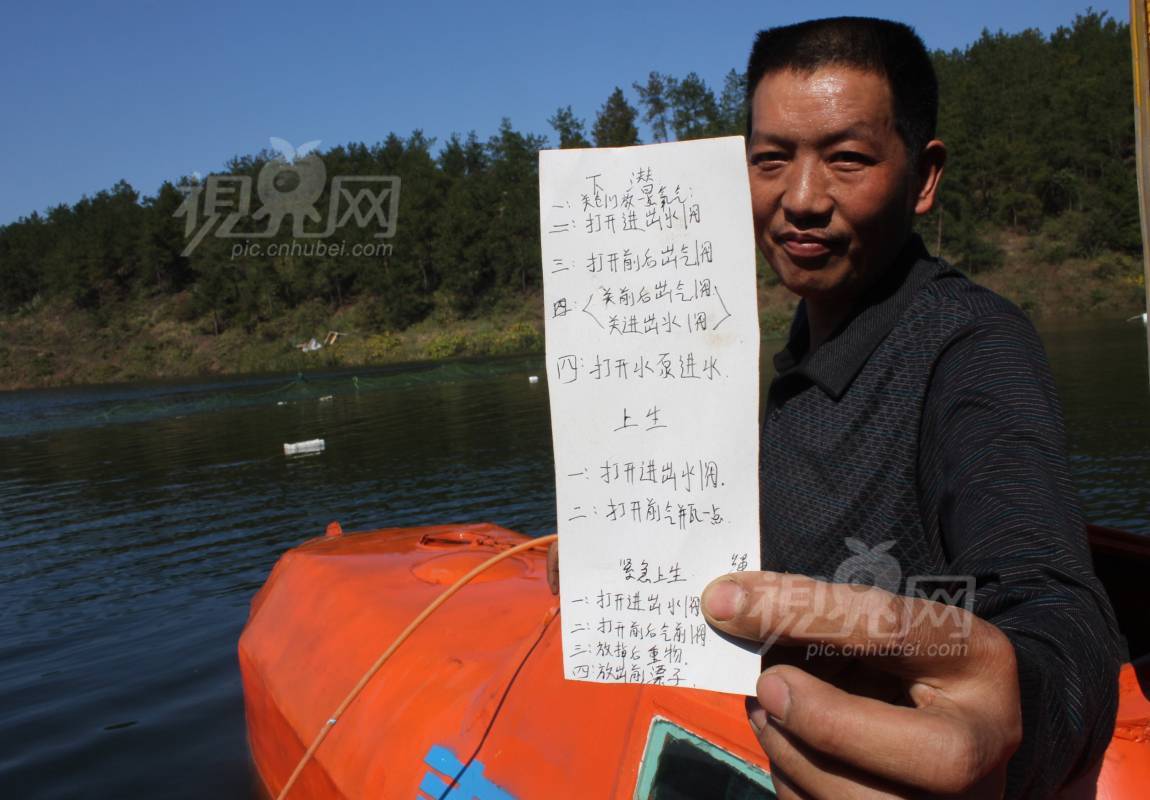 下潜
一:关门放量氧气:
二:打开进出水阀
三:打开前后出气阀
四:关前后出气阀
关进出水阀
四:打开水泵进水.
上生
一:打开进出水阀.
二:打开前气瓶一点.
紧急上生.
绳
一:打开进出水阀
二:打开前后气前阀.
三:放掉后重物.
四:放出前漂子.
視界网
pic.cnhubei.com
視界网
pic.cnhubei.com